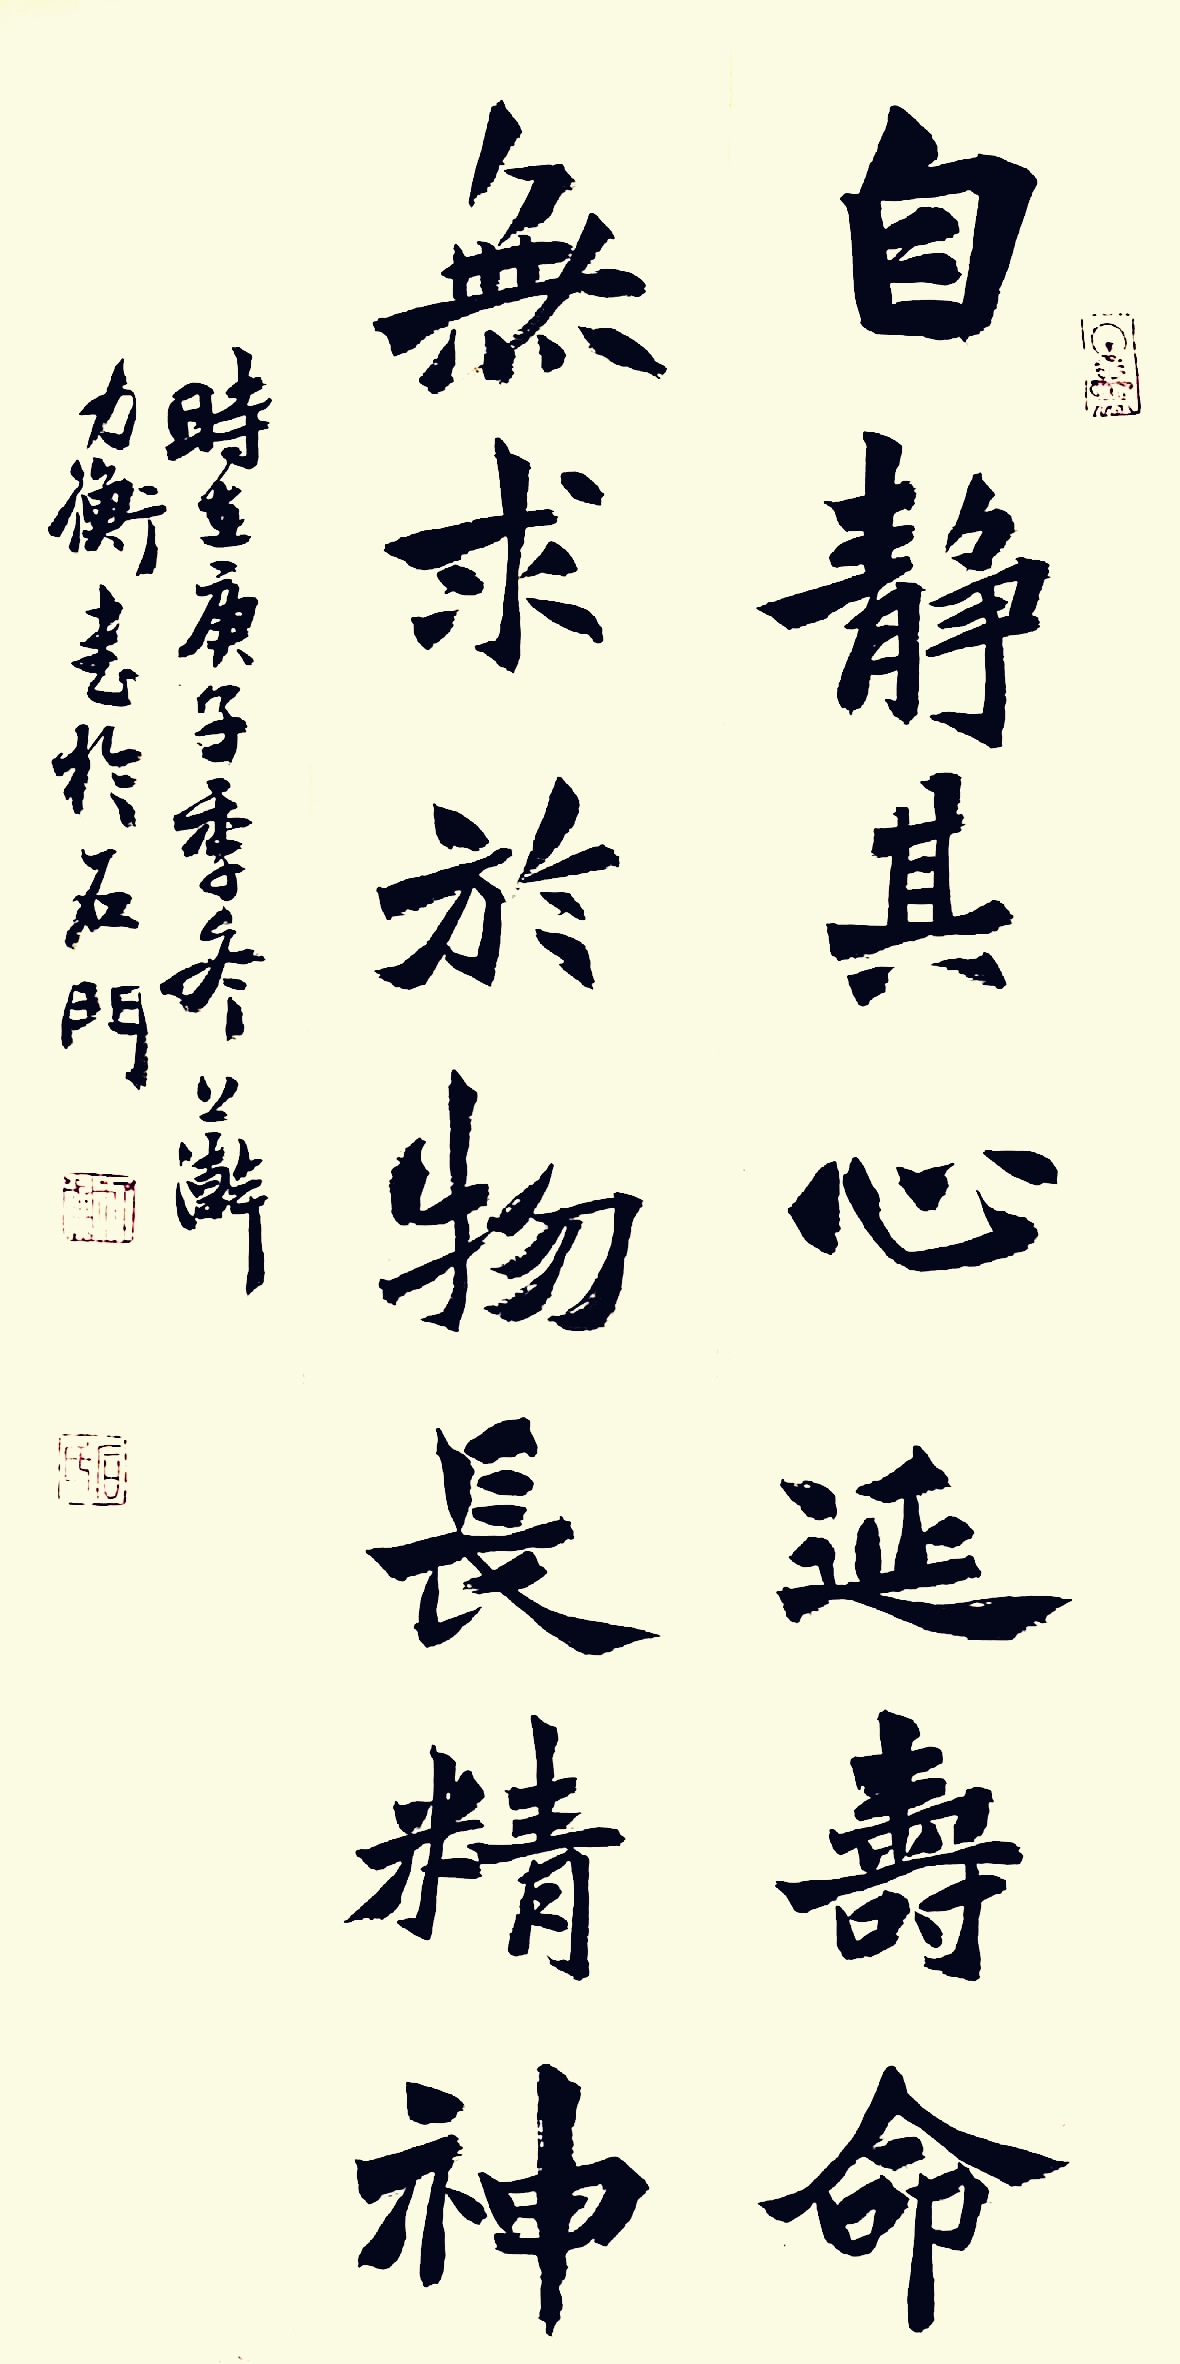 自靜其心延壽命
無求於物長精神
時在庚子季冬公瀚
力衡書於石門